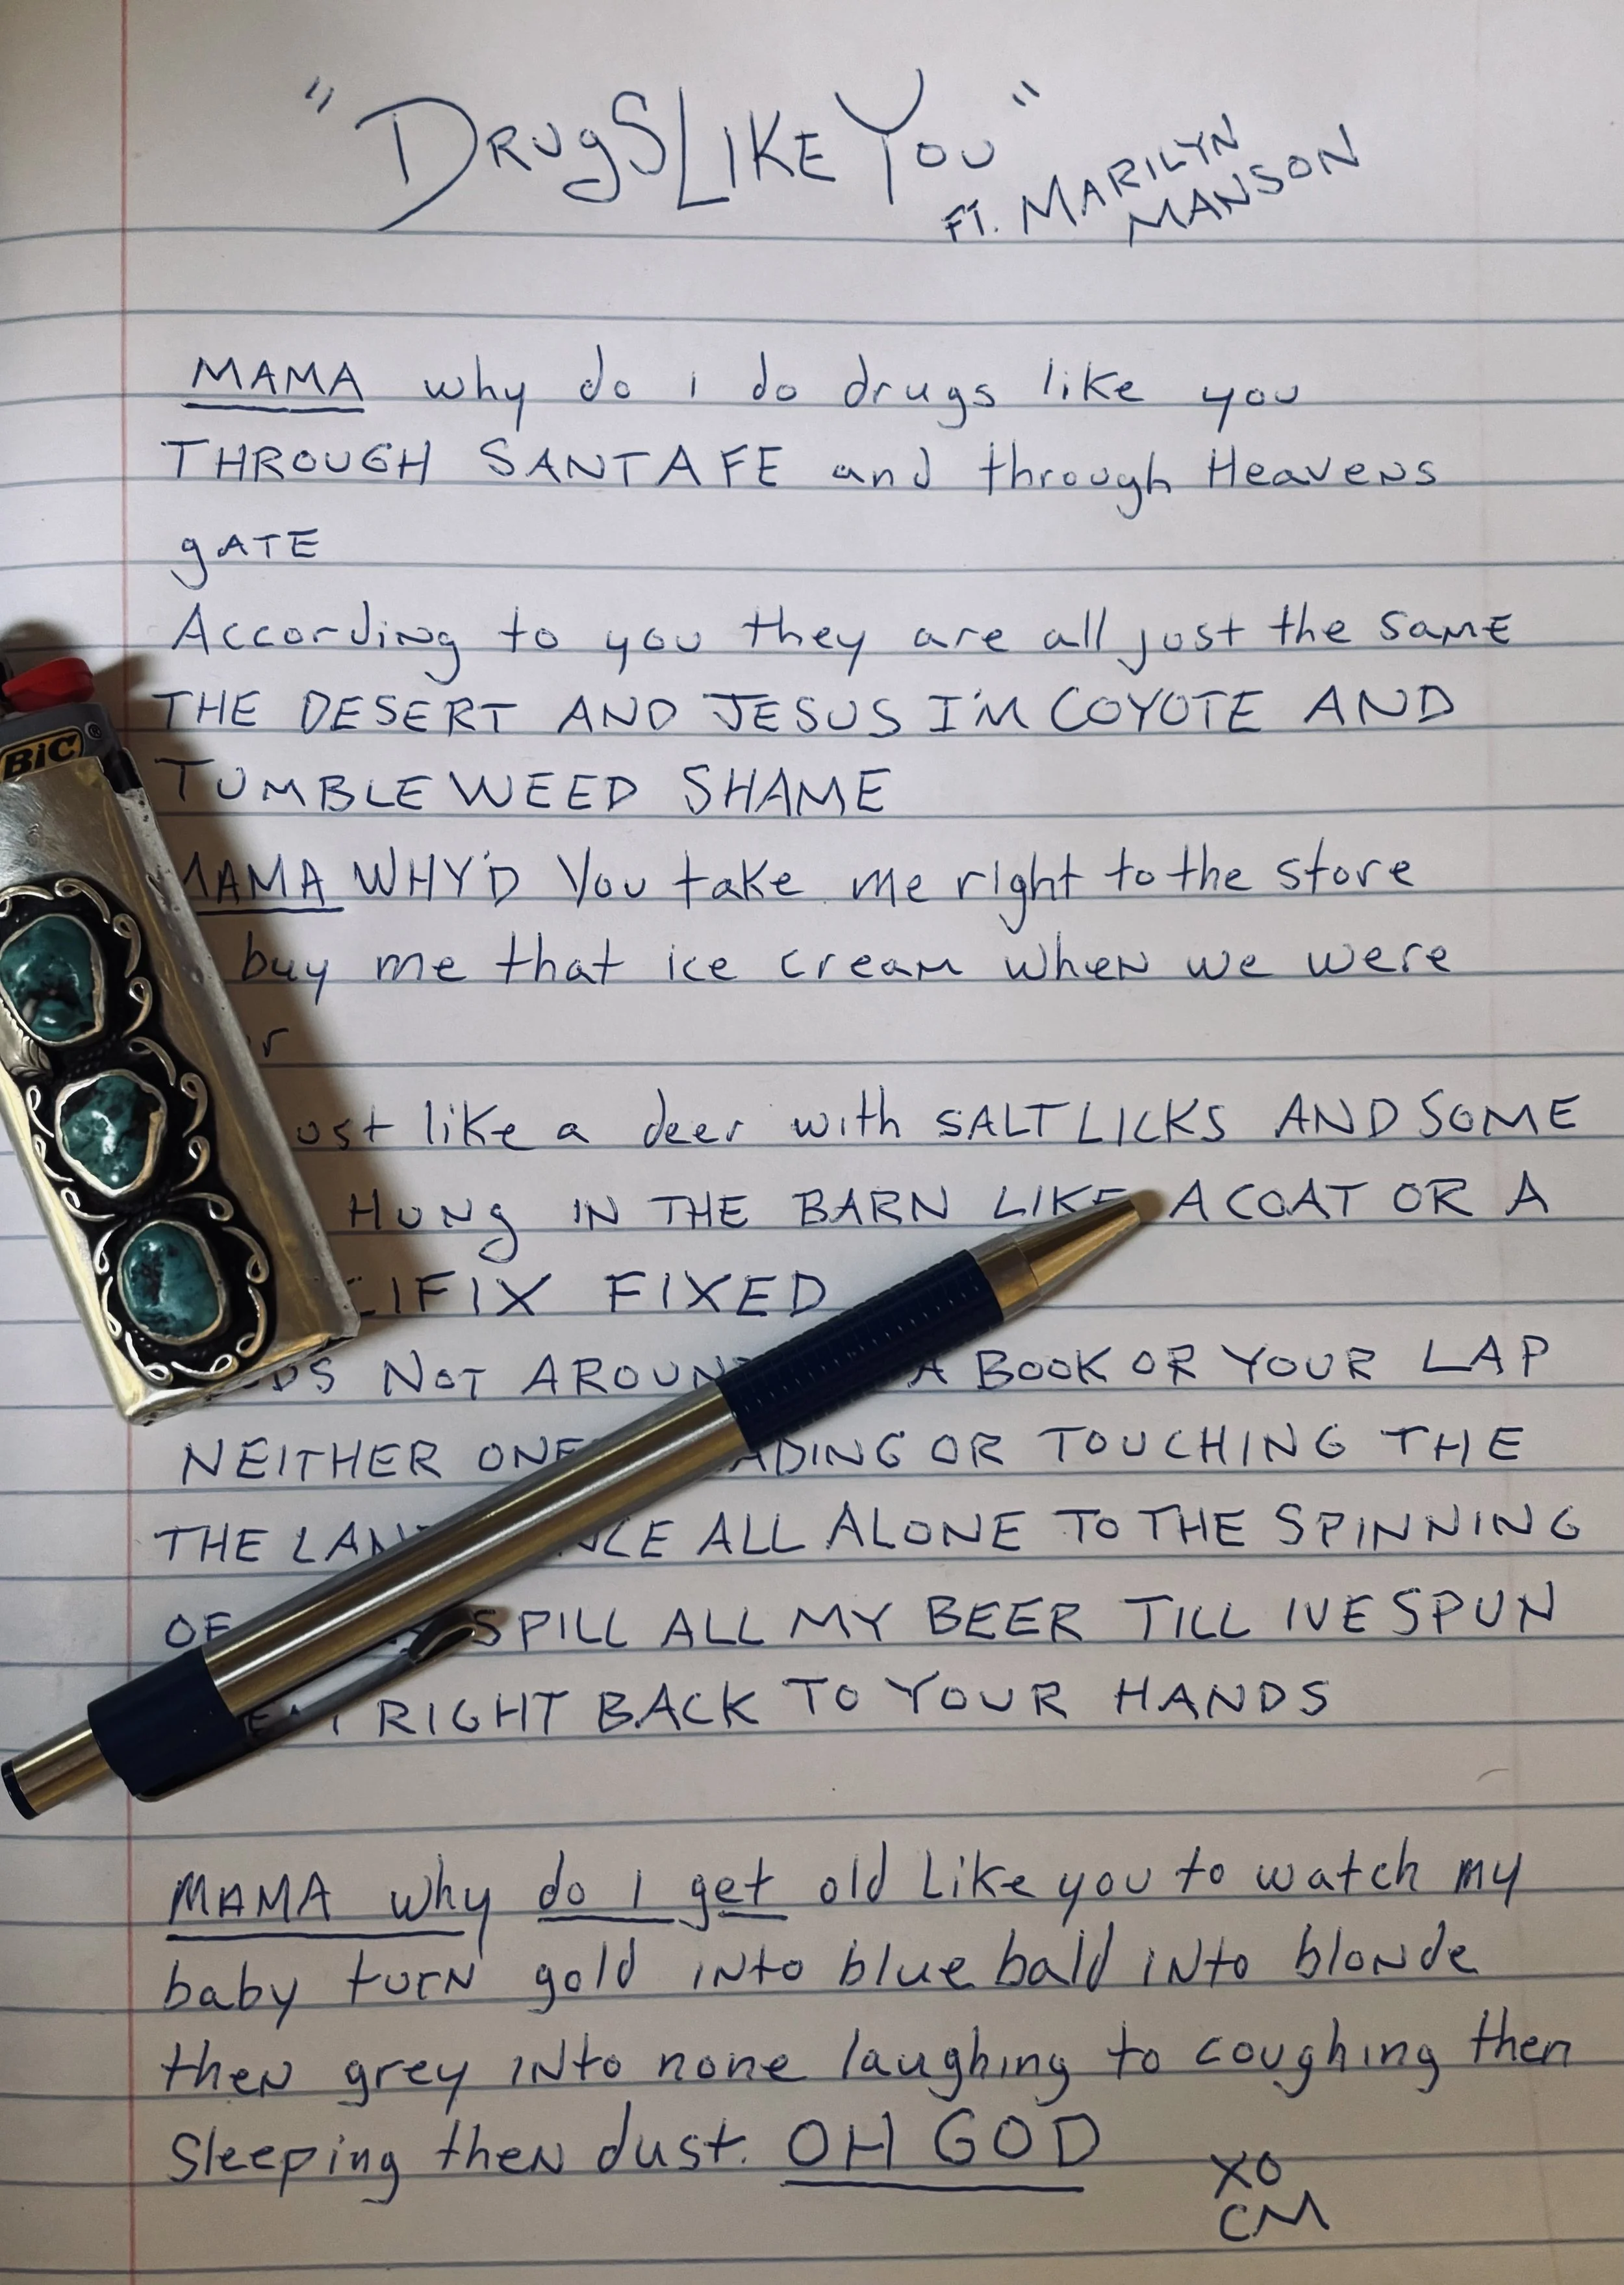 "DRUgSLIKEYOU"
FT. MARILYN
MANSON
MAMA why do i do drugs like you
THROUGH SANTA FE and through Heavens
gATE
According to you they are all just the samE
THE DESERT AND JESUS I'M COYOTE AND
TUMBLEWEED SHAME
BiC®
MAMA WHY'D You take me right to the store
buy me that ice cream when we were
like a deer with SALT LICKS AND SOME
HUNg IN THE BARN LIKE A COAT OR A
FIXED
NOT A BOOK OR YOUR LAP
NEITHER OR TOUCHING THE
THE ALL ALONE TO THE SPINNING
OF SPILL ALL MY BEER TILL IVE SPUN
RIGHT BACK TO YOUR HANDS
MAMA why do I get old Like you to watch my
baby turN gold iNto blue bald iNto bloNde
theN grey iNto none laughing to coughing then
Sleeping theN dust. OH GOD
XO
CM